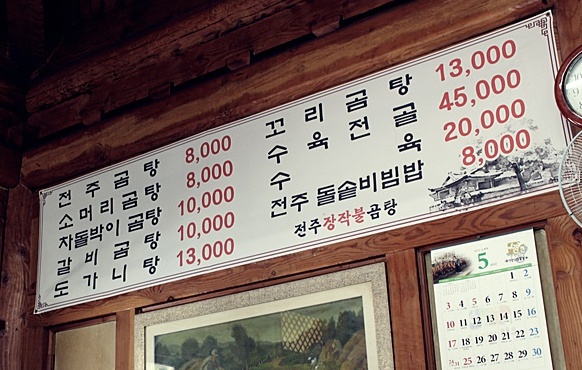 전주곰탕 8,000
소머리곰탕 8,000
차돌박이곰탕 10,000
갈비곰탕 10,000
도가니탕 13,000
꼬리곰탕 13,000
수육전골 45,000
수육 20,000
전주 돌솥비빔밥 8,000
전주장작불곰탕
5
1 2
3 4 5 6 7 8 9
10 11 12 13 14 15 16
17 18 19 20 21 22 23
24 31 25 26 27 28 29 30